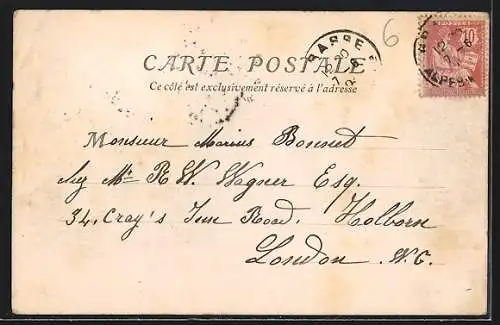 6
CARTE POSTALE
Ce côté est exclusivement réservé à l'adresse
10
POSTES
Monsieur Marius Bonnet
chez Mr. R. W. Wagner Esq.
34, Cray's Inn Road. Holborn
London. W.C.